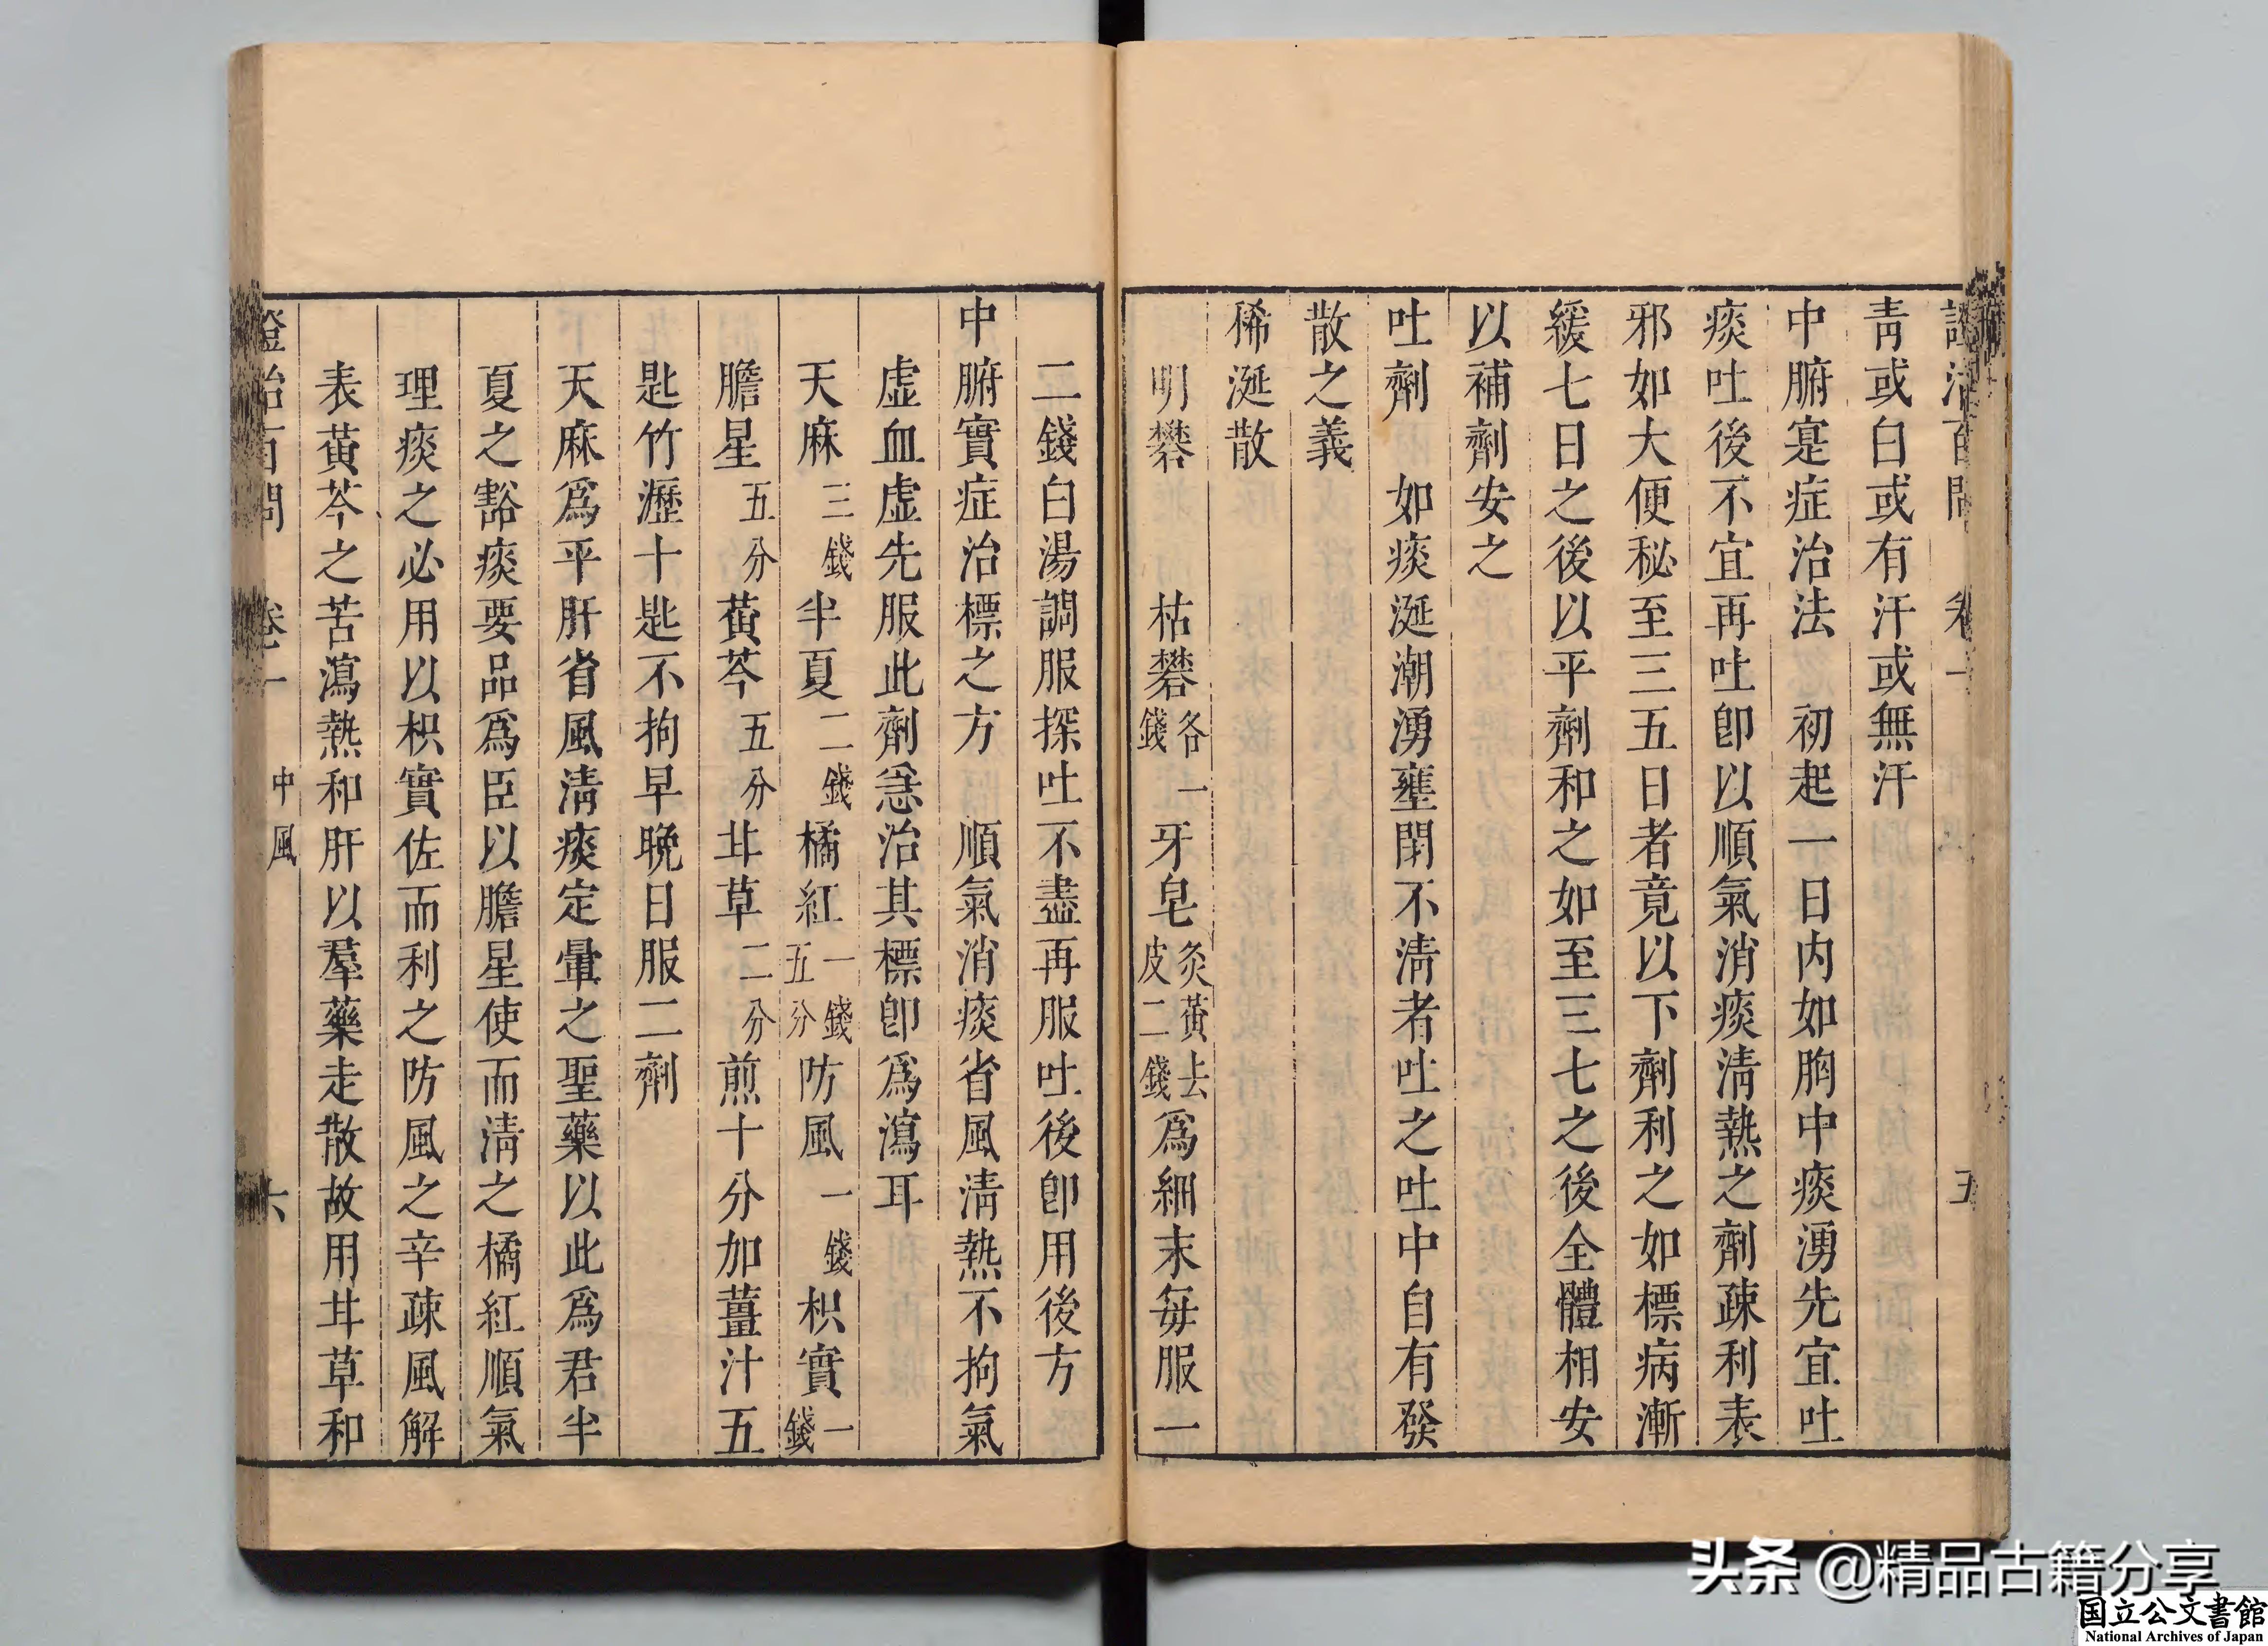 證治百問 卷一 五
青或白或有汗或無汗
中腑寔症治法 初起一日内如胸中痰湧先宜吐
痰吐後不宜再吐卽以順氣消痰淸熱之劑疎利表
邪如大便秘至三五日者竟以下劑利之如標病漸
緩七日之後以平劑和之如至三七之後全體相安
以補劑安之
吐劑 如痰涎潮湧壅閉不淸者吐之吐中自有發
散之義
稀涎散
明礬 枯礬各一錢 牙皂炙黃去皮二錢 爲細末每服一
二錢白湯調服探吐不盡再服吐後卽用後方
中腑實症治標之方 順氣消痰省風淸熱不拘氣
虛血虛先服此劑急治其標卽爲瀉耳
天麻三錢 半夏二錢 橘紅一錢五分 防風一錢 枳實一錢
膽星五分 黃芩五分 甘草二分 煎十分加薑汁五
匙竹瀝十匙不拘早晚日服二劑
天麻爲平肝省風淸痰定暈之聖藥以此爲君半
夏之豁痰要品爲臣以膽星使而淸之橘紅順氣
理痰之必用以枳實佐而利之防風之辛疎風解
表黃芩之苦瀉熱和肝以羣藥走散故用甘草和
證治百問 卷一 中風 六
头条 @精品古籍分享
国立公文書館
National Archives of Japan